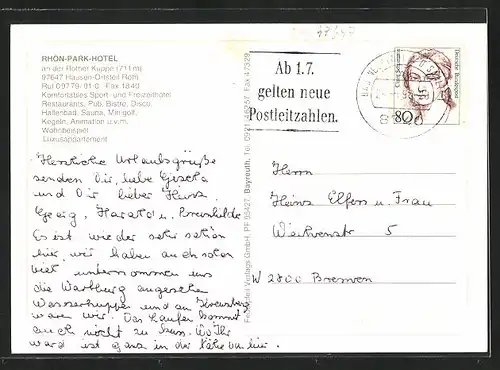 RHÖN-PARK-HOTEL
an der Rother Kuppe (711 m)
97647 Hausen-Ortsteil Roth
Ruf 09779-91 0 Fax 1840
Komfortables Sport- und Freizeithotel
Restaurants, Pub, Bistro, Disco,
Hallenbad, Sauna, Minigolf,
Kegeln, Animation u.v.m.
Wohnbeispiel
Luxusappartement
Herzliche Urlaubsgrüße
senden Dir, liebe Gescha
und Dir lieber Heinz
Georg, Harald u.
Es ist wieder sehr schön
hier, wir haben auch schon
viel unternommen uns
die Wartburg angesehen
Wasserkuppe und am Kreuzberg
waren wir. Das Laufen kommt
auch nicht zu kurz. Wo Ihr
ward ist ganz in der Nähe von hier.
Verlags GmbH, PF 95427, Bayreuth, Tel. 0921 Fax 47329
Ab 1.7.
gelten neue
Postleitzahlen.
Deutsche Bundespost
80
Herrn
Heinz Elfers u. Frau
5
W 2800 Bremen